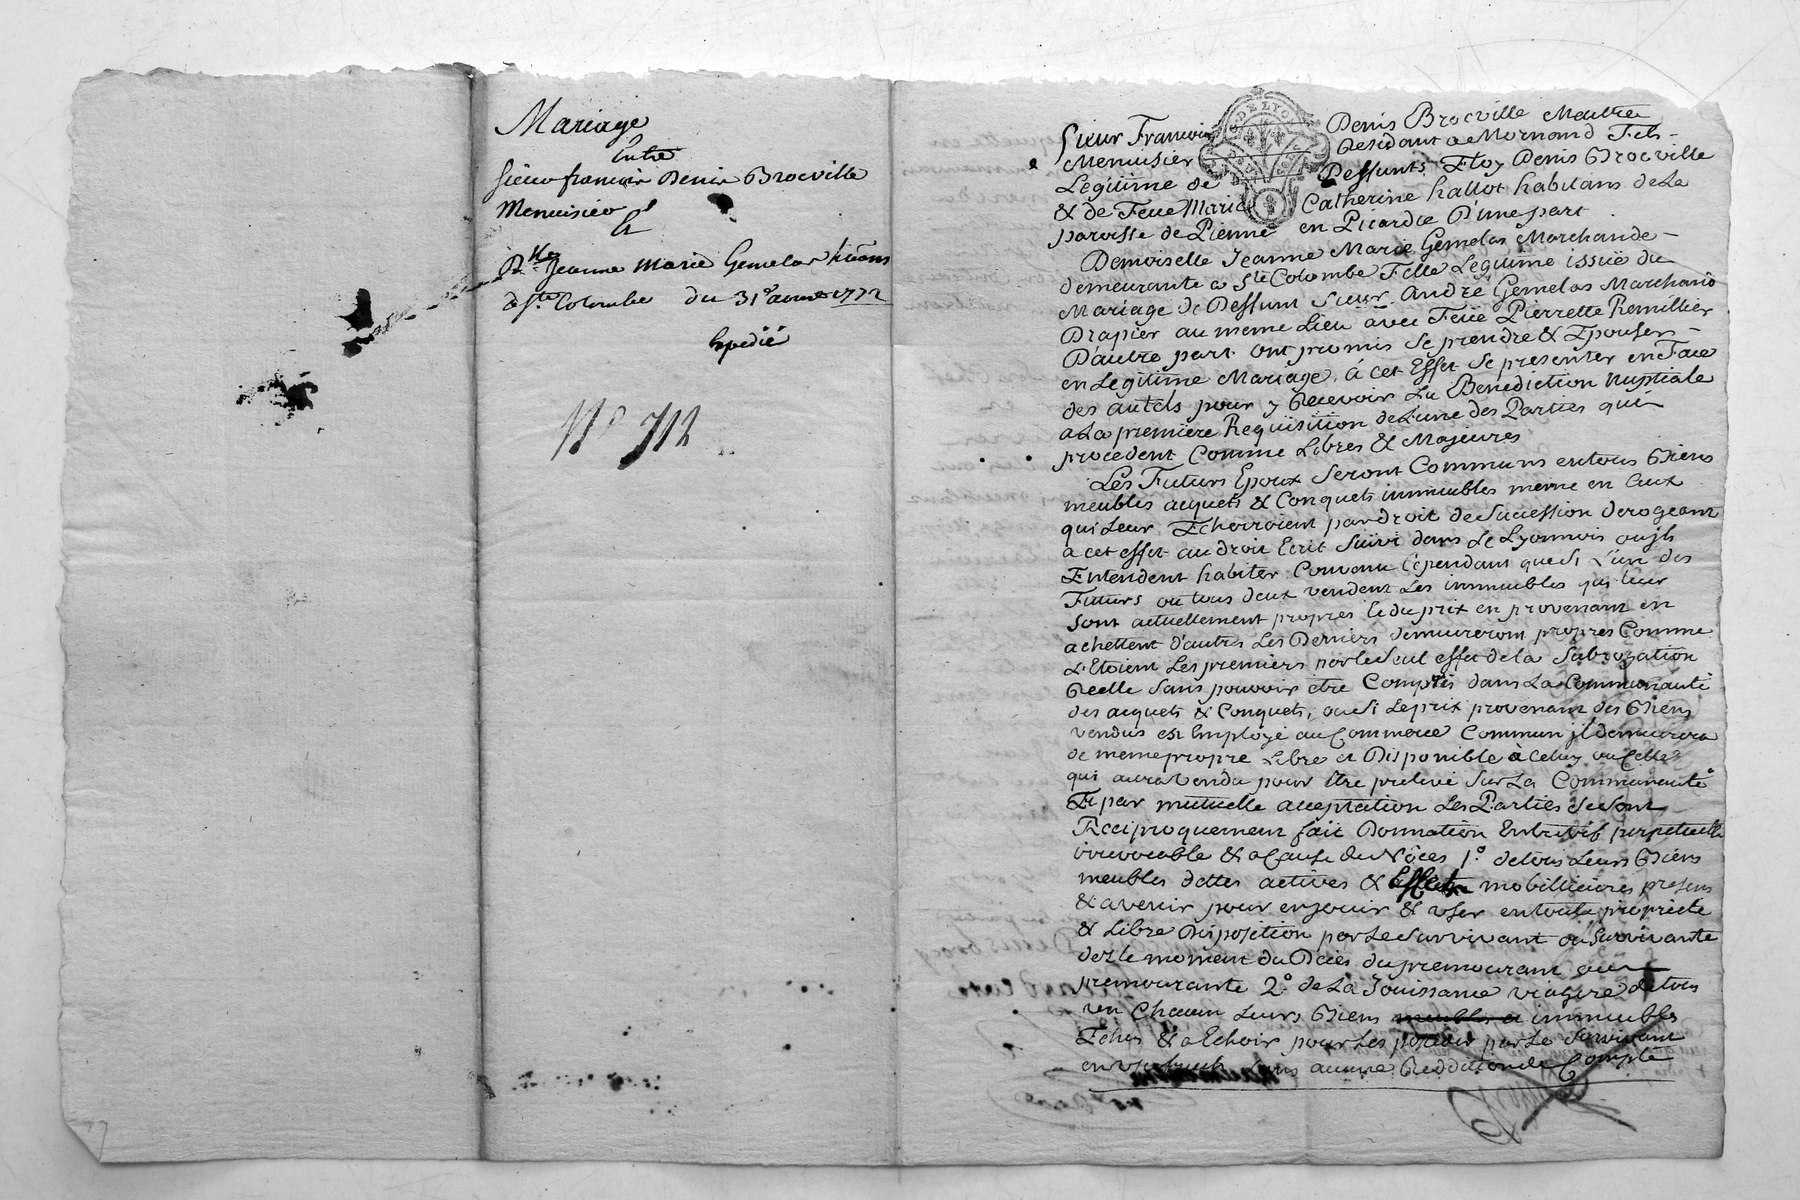 Mariage
Entre
Sieur francois Denis Brocville
Menuisier
&
Dlle Jeanne Marie Gemelas
de Ste Colombe du 31e aoust 1772
Expedié
No 712
G. DE LYON
Sieur Francois Denis Brocville Maitre
Menuisier Residant a Mornand Fils
Legitime de Deffunts Eloy Denis Brocville
& de Feue Marie Catherine hallot habitans de La
paroisse de Pienne en Picardie D'une part
Demoiselle Jeanne Marie Gemelas Marchande
demeurante a Ste Colombe Fille Legitime issüe du
Mariage de Deffunt Sieur André Gemelas Marchand
Drapier au meme Lieu avec Feüe Pierrette Remillier
D'autre part ont promis se prendre & Epouser
en Legitime Mariage, á cet Effet se presenter en Face
des autels pour y Recevoir La Benediction Nuptiale
a La premiere Requisition de L'une des Parties qui
procedent Comme Libres & Majeures
Les Futurs Epoux seront Communs en tous Biens
meubles acquets & Conquets immeubles meme en Ceux
qui Leur Echerroient par droit de Succession derogeant
a cet effet au droit Ecrit suivi dans Le Lyonnois ou jls
Entendent habiter Convenu Cependant que si L'un des
Futurs ou tous deux vendent Les immeubles qui leur
sont actuellement propres & du prix en provenant en
achettent d'autres Les Derniers demeureront propres Comme
L'Etoient Les premiers par le Seul effet de la Subrogation
Reelle sans pouvoir être Compris dans La Communauté
des acquets & Conquets, ou si Le prix provenant des Biens
vendus est Employé au Commerce Commun jl demeurera
de meme propre Libre et Disponible à Celuy ou Celle
qui aura vendu pour être prelevé sur La Communauté
Et par mutuelle acceptation Les Parties se sont
Reciproquement fait Donnation Entrevifs perpetuelle
irrevocable & a Cause de Nôces 1o. de tous Leurs Biens
meubles dettes actives & Effets mobilliers presens
& avenir pour en jouir & user en toute propriete
& Libre Disposition par Le Survivant ou Survivante
dez le moment du Deces du premourant ou
premourante 2o. de La Jouissance viagere de tous
un Chacun Leurs Biens meubles et immeubles
Echus & a Echoir pour Les par Le Survivant
en usufruit sans aucune Reddition de Compte